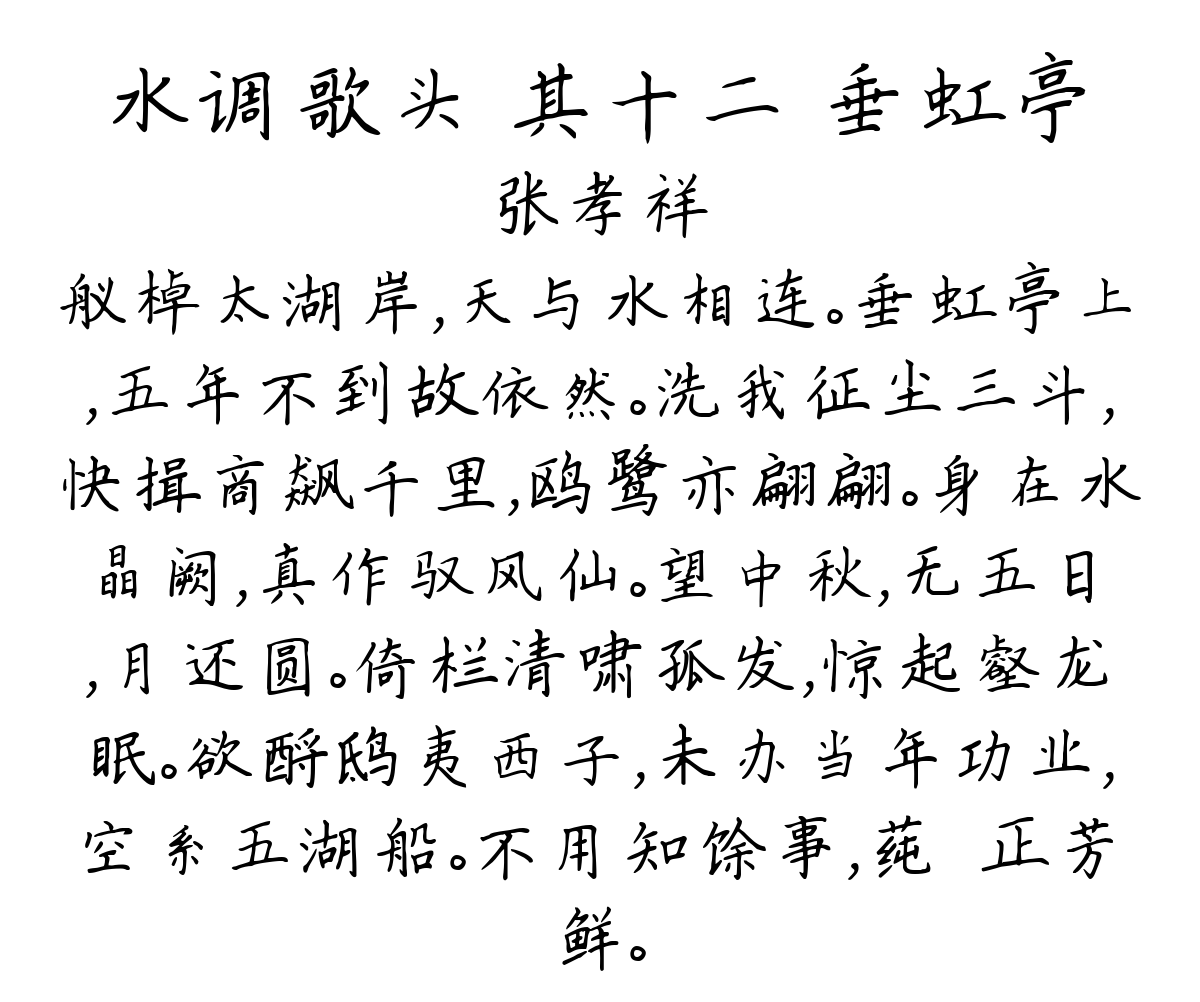 水调歌头 其十二 垂虹亭
张孝祥
舣棹太湖岸,天与水相连。垂虹亭上
,五年不到故依然。洗我征尘三斗,
快揖商飙千里,鸥鹭亦翩翩。身在水
晶阙,真作驭风仙。望中秋,无五日
,月还圆。倚栏清啸孤发,惊起壑龙
眠。欲酹鸱夷西子,未办当年功业,
空系五湖船。不用知馀事,莼 正芳
鲜。